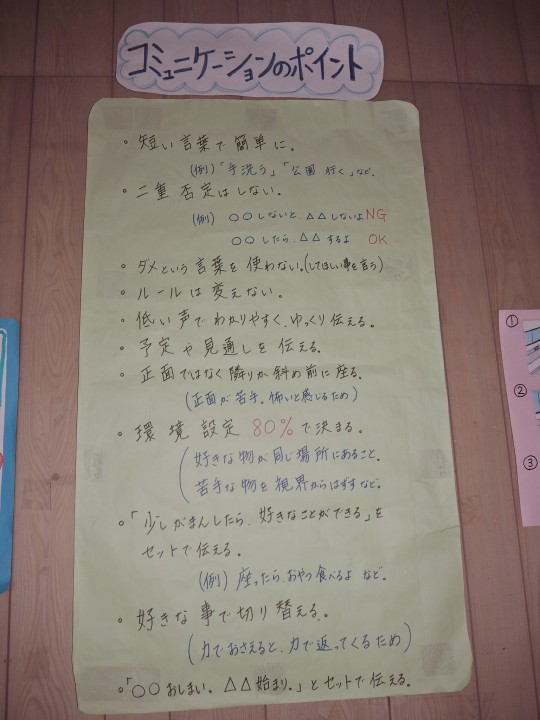 コミュニケーションのポイント
・短い言葉で簡単に。
(例)「手洗う」「公園 行く」など。
・二重否定はしない。
(例) ○○しないと、△△しないよ NG
○○したら、△△するよ OK
・ダメという言葉を使わない。(してほしい事を言う)
・ルールは変えない。
・低い声でわかりやすく、ゆっくり伝える。
・予定や見通しを伝える。
・正面ではなく隣りか斜め前に座る。
(正面が苦手。怖いと感じるため)
・環境設定 80%で決まる。
(好きな物が同じ場所にあること。
苦手な物を視界からはずすなど。
・「少しがまんしたら、好きなことができる」を
セットで伝える。
(例) 座ったら、おやつ食べるよ など。
・好きな事で切り替える。
(力でおさえると、力で返ってくるため)
・「○○おしまい。△△始まり。」とセットで伝える。
①
②
③